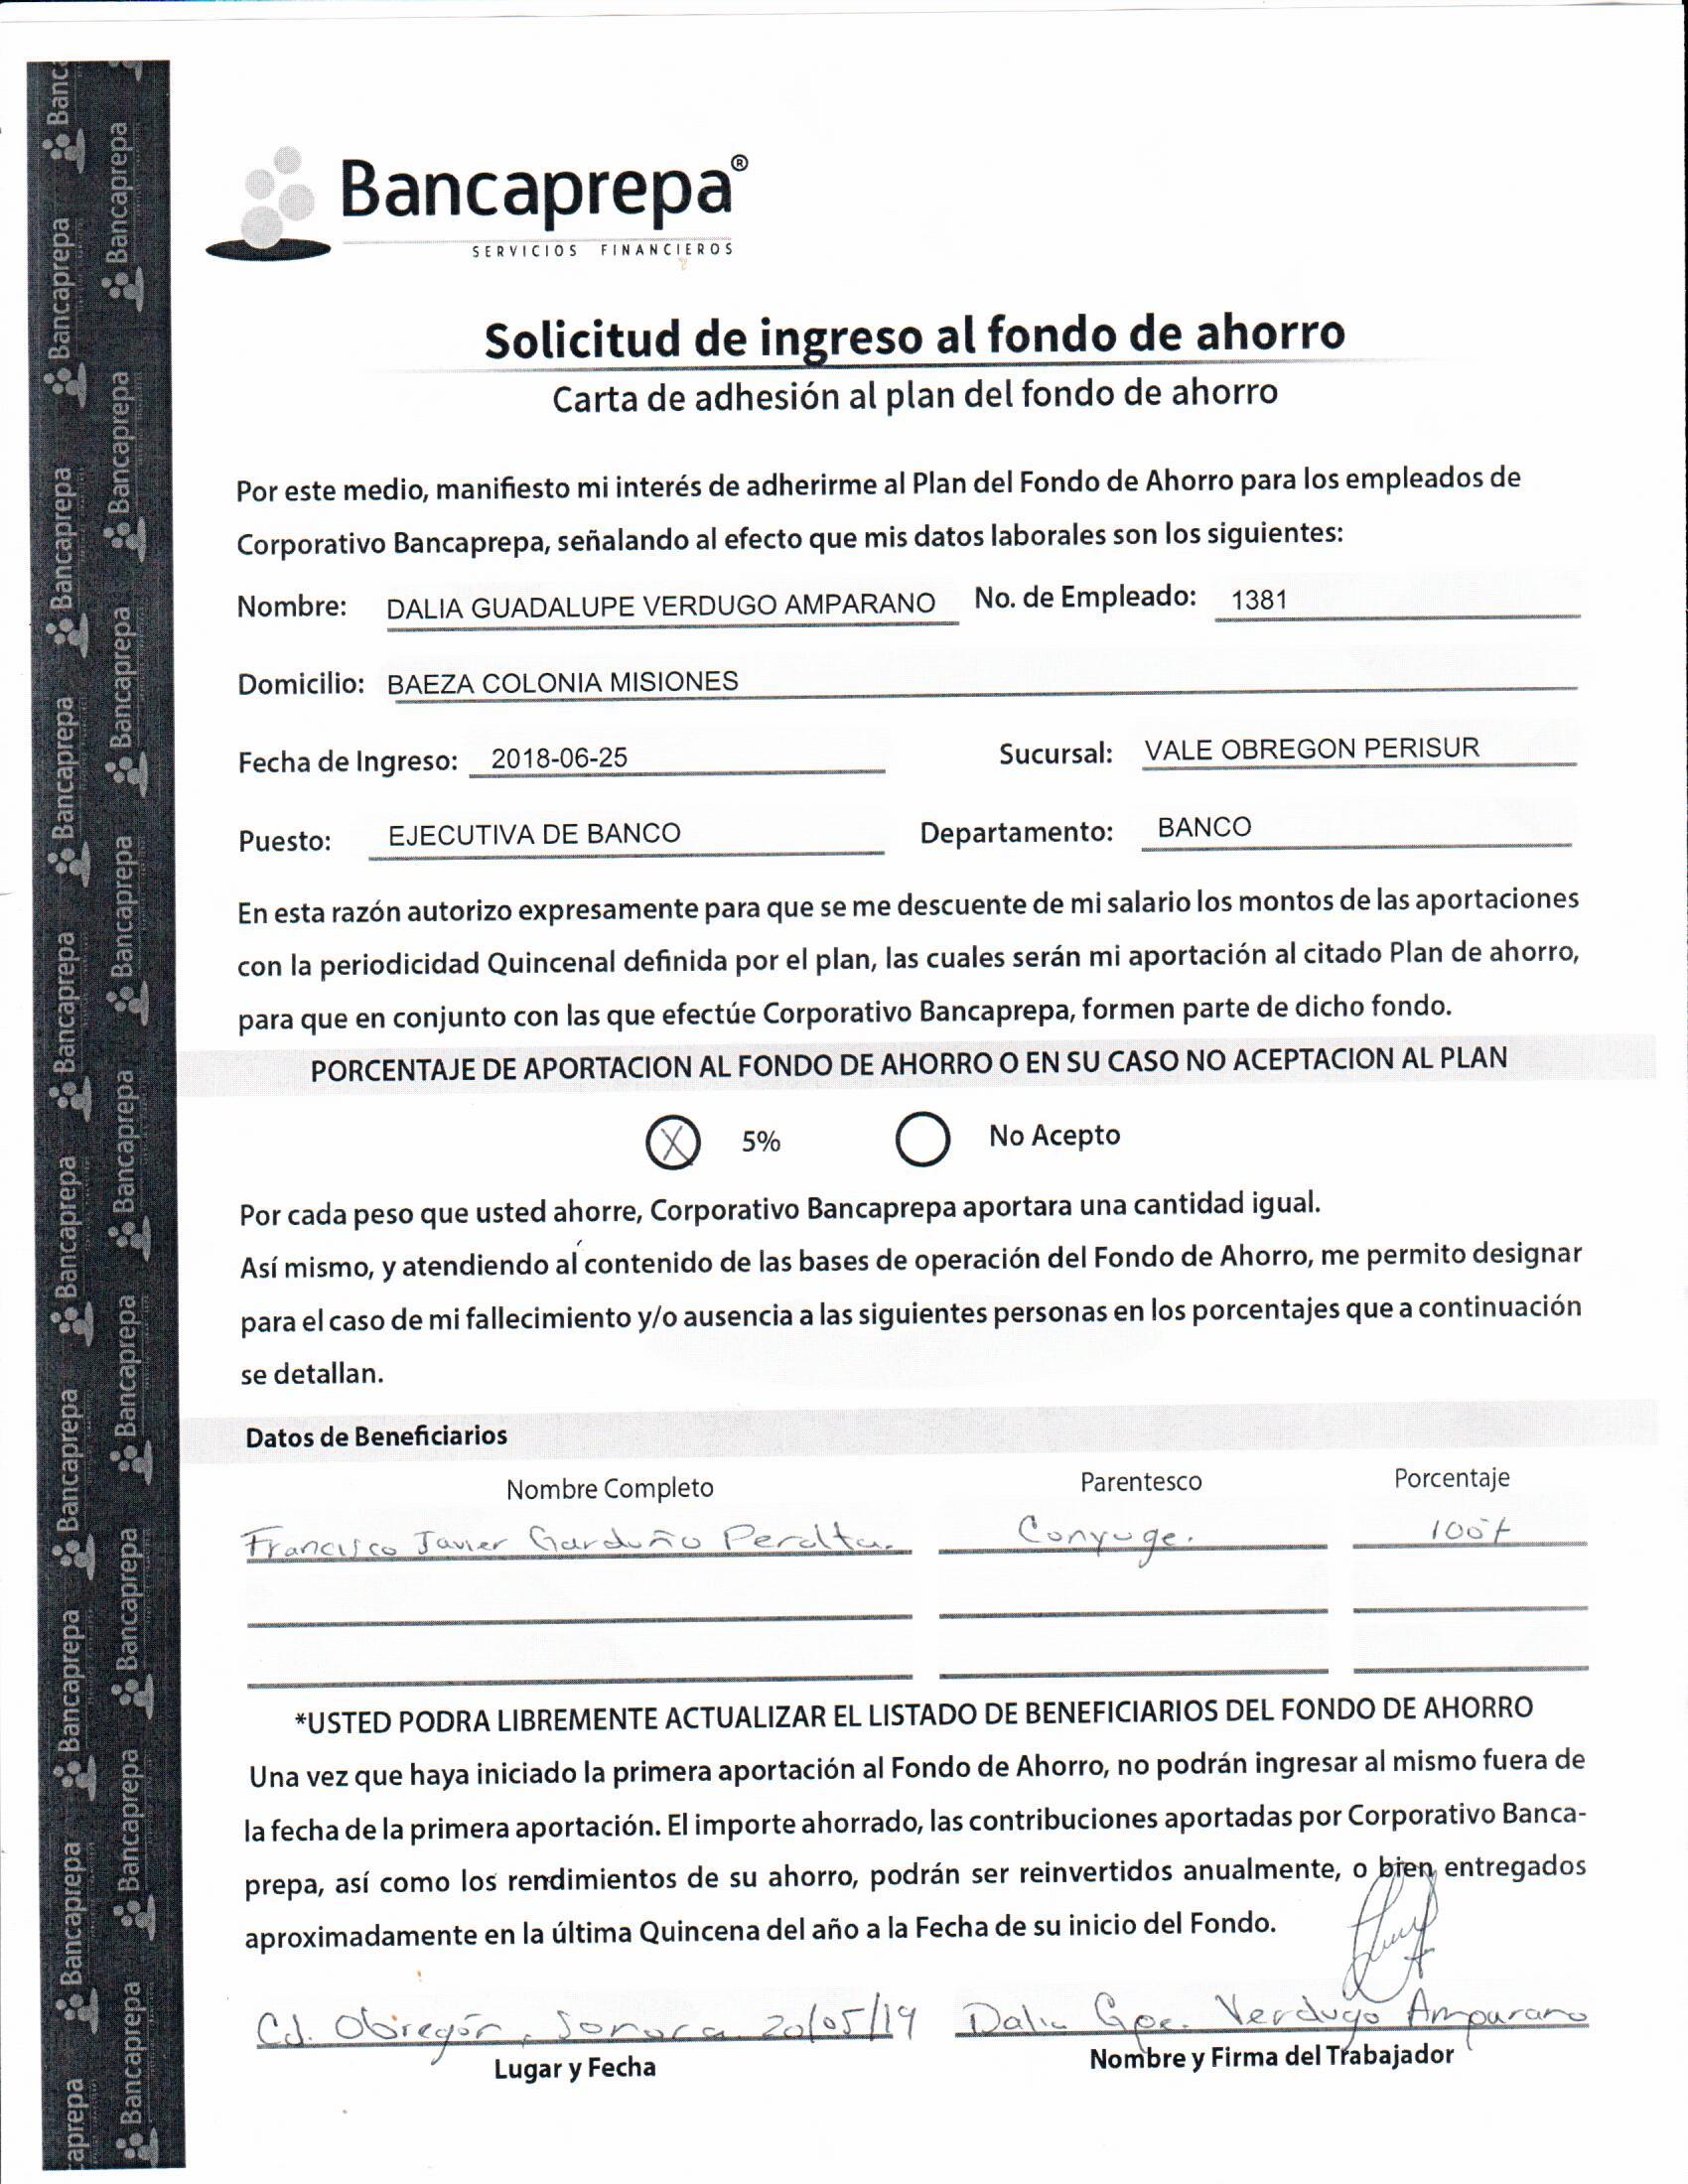 Bancaprepa®
SERVICIOS FINANCIEROS
Solicitud de ingreso al fondo de ahorro
Carta de adhesión al plan del fondo de ahorro
Por este medio, manifiesto mi interés de adherirme al Plan del Fondo de Ahorro para los empleados de
Corporativo Bancaprepa, señalando al efecto que mis datos laborales son los siguientes:
Nombre: DALIA GUADALUPE VERDUGO AMPARANO No. de Empleado: 1381
Domicilio: BAEZA COLONIA MISIONES
Fecha de Ingreso: 2018-06-25 Sucursal: VALE OBREGON PERISUR
Puesto: EJECUTIVA DE BANCO Departamento: BANCO
En esta razón autorizo expresamente para que se me descuente de mi salario los montos de las aportaciones
con la periodicidad Quincenal definida por el plan, las cuales serán mi aportación al citado Plan de ahorro,
para que en conjunto con las que efectúe Corporativo Bancaprepa, formen parte de dicho fondo.
PORCENTAJE DE APORTACION AL FONDO DE AHORRO O EN SU CASO NO ACEPTACION AL PLAN
X 5% No Acepto
Por cada peso que usted ahorre, Corporativo Bancaprepa aportara una cantidad igual.
Así mismo, y atendiendo al contenido de las bases de operación del Fondo de Ahorro, me permito designar
para el caso de mi fallecimiento y/o ausencia a las siguientes personas en los porcentajes que a continuación
se detallan.
Datos de Beneficiarios
Nombre Completo Parentesco Porcentaje
Francisco Javier Garduño Peralta. Conyuge. 100%
*USTED PODRA LIBREMENTE ACTUALIZAR EL LISTADO DE BENEFICIARIOS DEL FONDO DE AHORRO
Una vez que haya iniciado la primera aportación al Fondo de Ahorro, no podrán ingresar al mismo fuera de
la fecha de la primera aportación. El importe ahorrado, las contribuciones aportadas por Corporativo Banca-
prepa, así como los rendimientos de su ahorro, podrán ser reinvertidos anualmente, o bien entregados
aproximadamente en la última Quincena del año a la Fecha de su inicio del Fondo.
Cd. Obregón, Sonora 20/05/19 Dalia Gpe. Verdugo Amparano
Lugar y Fecha Nombre y Firma del Trabajador